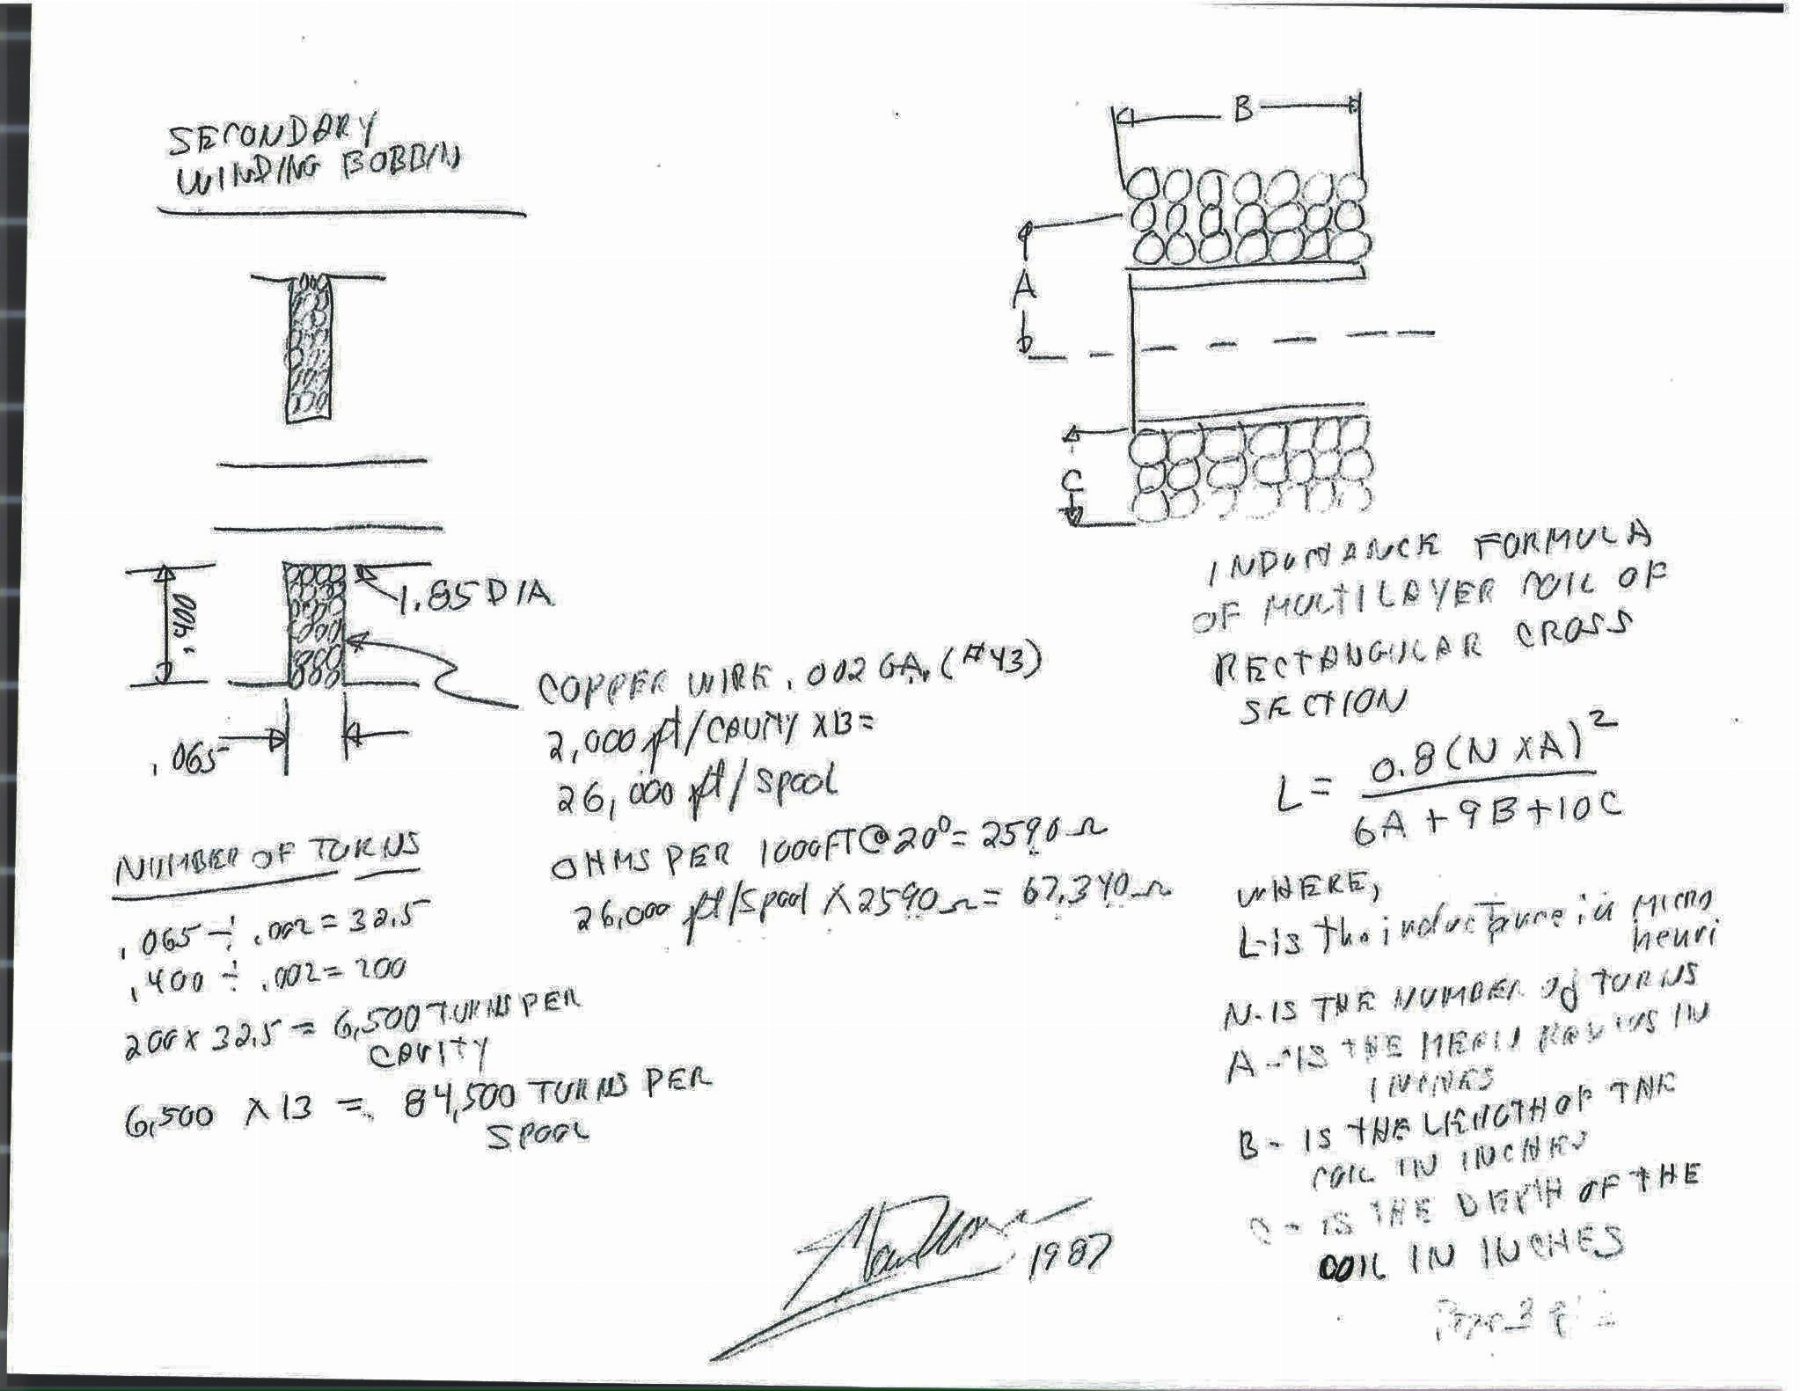 SECONDARY
WINDING BOBBIN
.400
1.85 DIA
.065
COPPER WIRE .002 GA. (#43)
2,000 ft/CAVITY X13=
26,000 ft/spool
OHMS PER 1000FT@20°=2590Ω
26,000 ft/spool X2590Ω=67,340Ω
NUMBER OF TURNS
.065 ÷ .002 = 32.5
.400 ÷ .002 = 200
200 X 32.5 = 6,500 TURNS PER
CAVITY
6,500 X 13 = 84,500 TURNS PER
SPOOL
B
A
C
INDUCTANCE FORMULA
OF MULTILAYER COIL OF
RECTANGULAR CROSS
SECTION
L = 0.8 (N X A)²
6A + 9B + 10C
WHERE,
L-is the inductance in MICRO
henri
N-IS THE NUMBER of TURNS
A-IS THE MEAN RADIUS IN
INCHES
B-IS THE LENGTH OF THE
COIL IN INCHES
C-IS THE DEPTH OF THE
COIL IN INCHES
1987